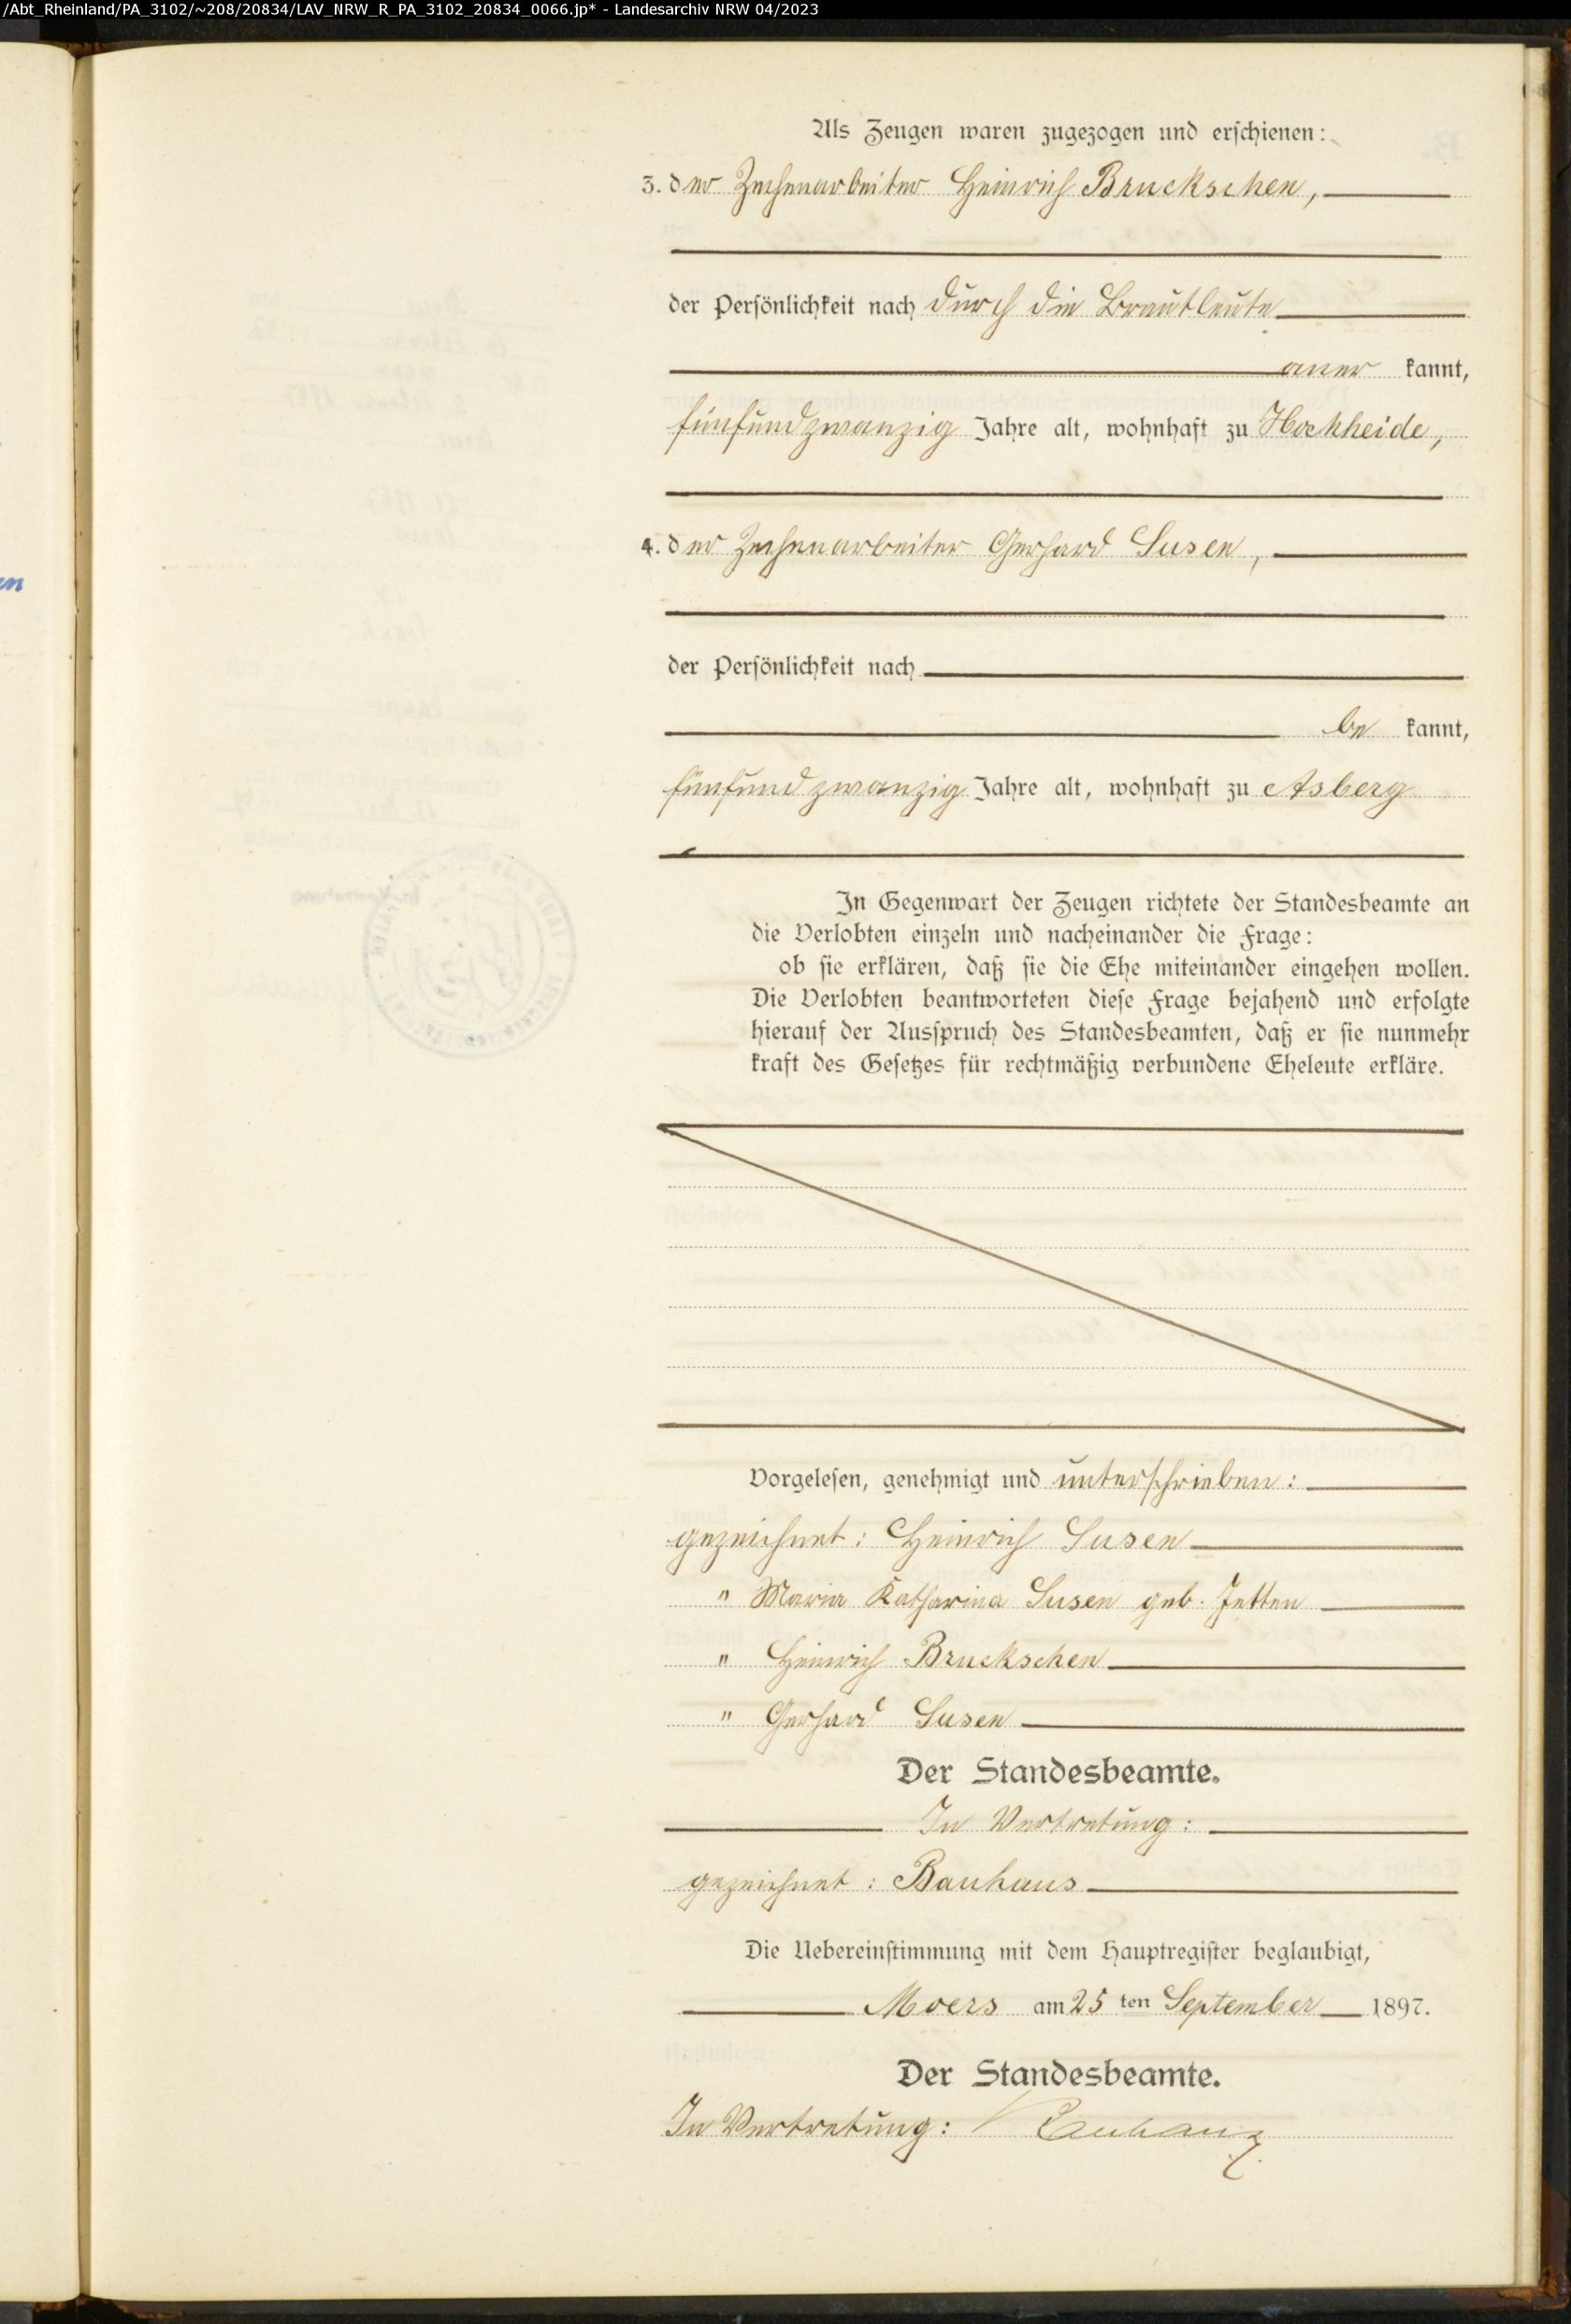 /Abt_Rheinland/PA_3102/~208/20834/LAV_NRW_R_PA_3102_20834_0066.jp* - Landesarchiv NRW 04/2023
Als Zeugen waren zugezogen und erschienen:
3. der Zechenarbeiter Heinrich Bruckschen,
der Persönlichkeit nach durch die Brautleute
aner kannt,
fünfundzwanzig Jahre alt, wohnhaft zu Hochheide,
4. der Zechenarbeiter Gerhard Susen,
der Persönlichkeit nach
be kannt,
fünfundzwanzig Jahre alt, wohnhaft zu Asberg
en
In Gegenwart der Zeugen richtete der Standesbeamte an
die Verlobten einzeln und nacheinander die Frage:
ob sie erklären, daß sie die Ehe miteinander eingehen wollen.
Die Verlobten beantworteten diese Frage bejahend und erfolgte
hierauf der Ausspruch des Standesbeamten, daß er sie nunmehr
kraft des Gesetzes für rechtmäßig verbundene Eheleute erkläre.
Vorgelesen, genehmigt und unterschrieben:
gezeichnet: Heinrich Susen
" Maria Katharina Susen geb. Jetten
" Heinrich Bruckschen
" Gerhard Susen
Der Standesbeamte.
In Vertretung:
gezeichnet: Bauhaus
Die Uebereinstimmung mit dem Hauptregister beglaubigt,
Moers am 25 ten September 1897.
Der Standesbeamte.
In Vertretung: Bauhaus